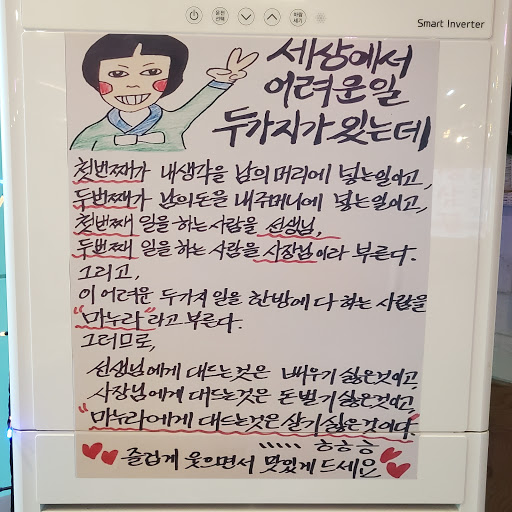 운전
선택
바람
세기
Smart Inverter
세상에서
어려운일
두가지가 있는데
첫번째가 내생각을 남의 머리에 넣는일이고,
두번째가 남의돈을 내주머니에 넣는일이고,
첫번째 일을 하는 사람을 선생님,
두번째 일을 하는 사람을 사장님이라 부른다.
그리고,
이 어려운 두가지 일을 한방에 다 하는 사람을
"마누라"라고 부른다.
그러므로,
선생님에게 대드는것은 배우기 싫은것이고,
사장님에게 대드는것은 돈벌기 싫은것이고
"마누라에게 대드는것은 살기 싫은것이다."
ㅎㅎㅎ
즐겁게 웃으면서 맛있게 드세요